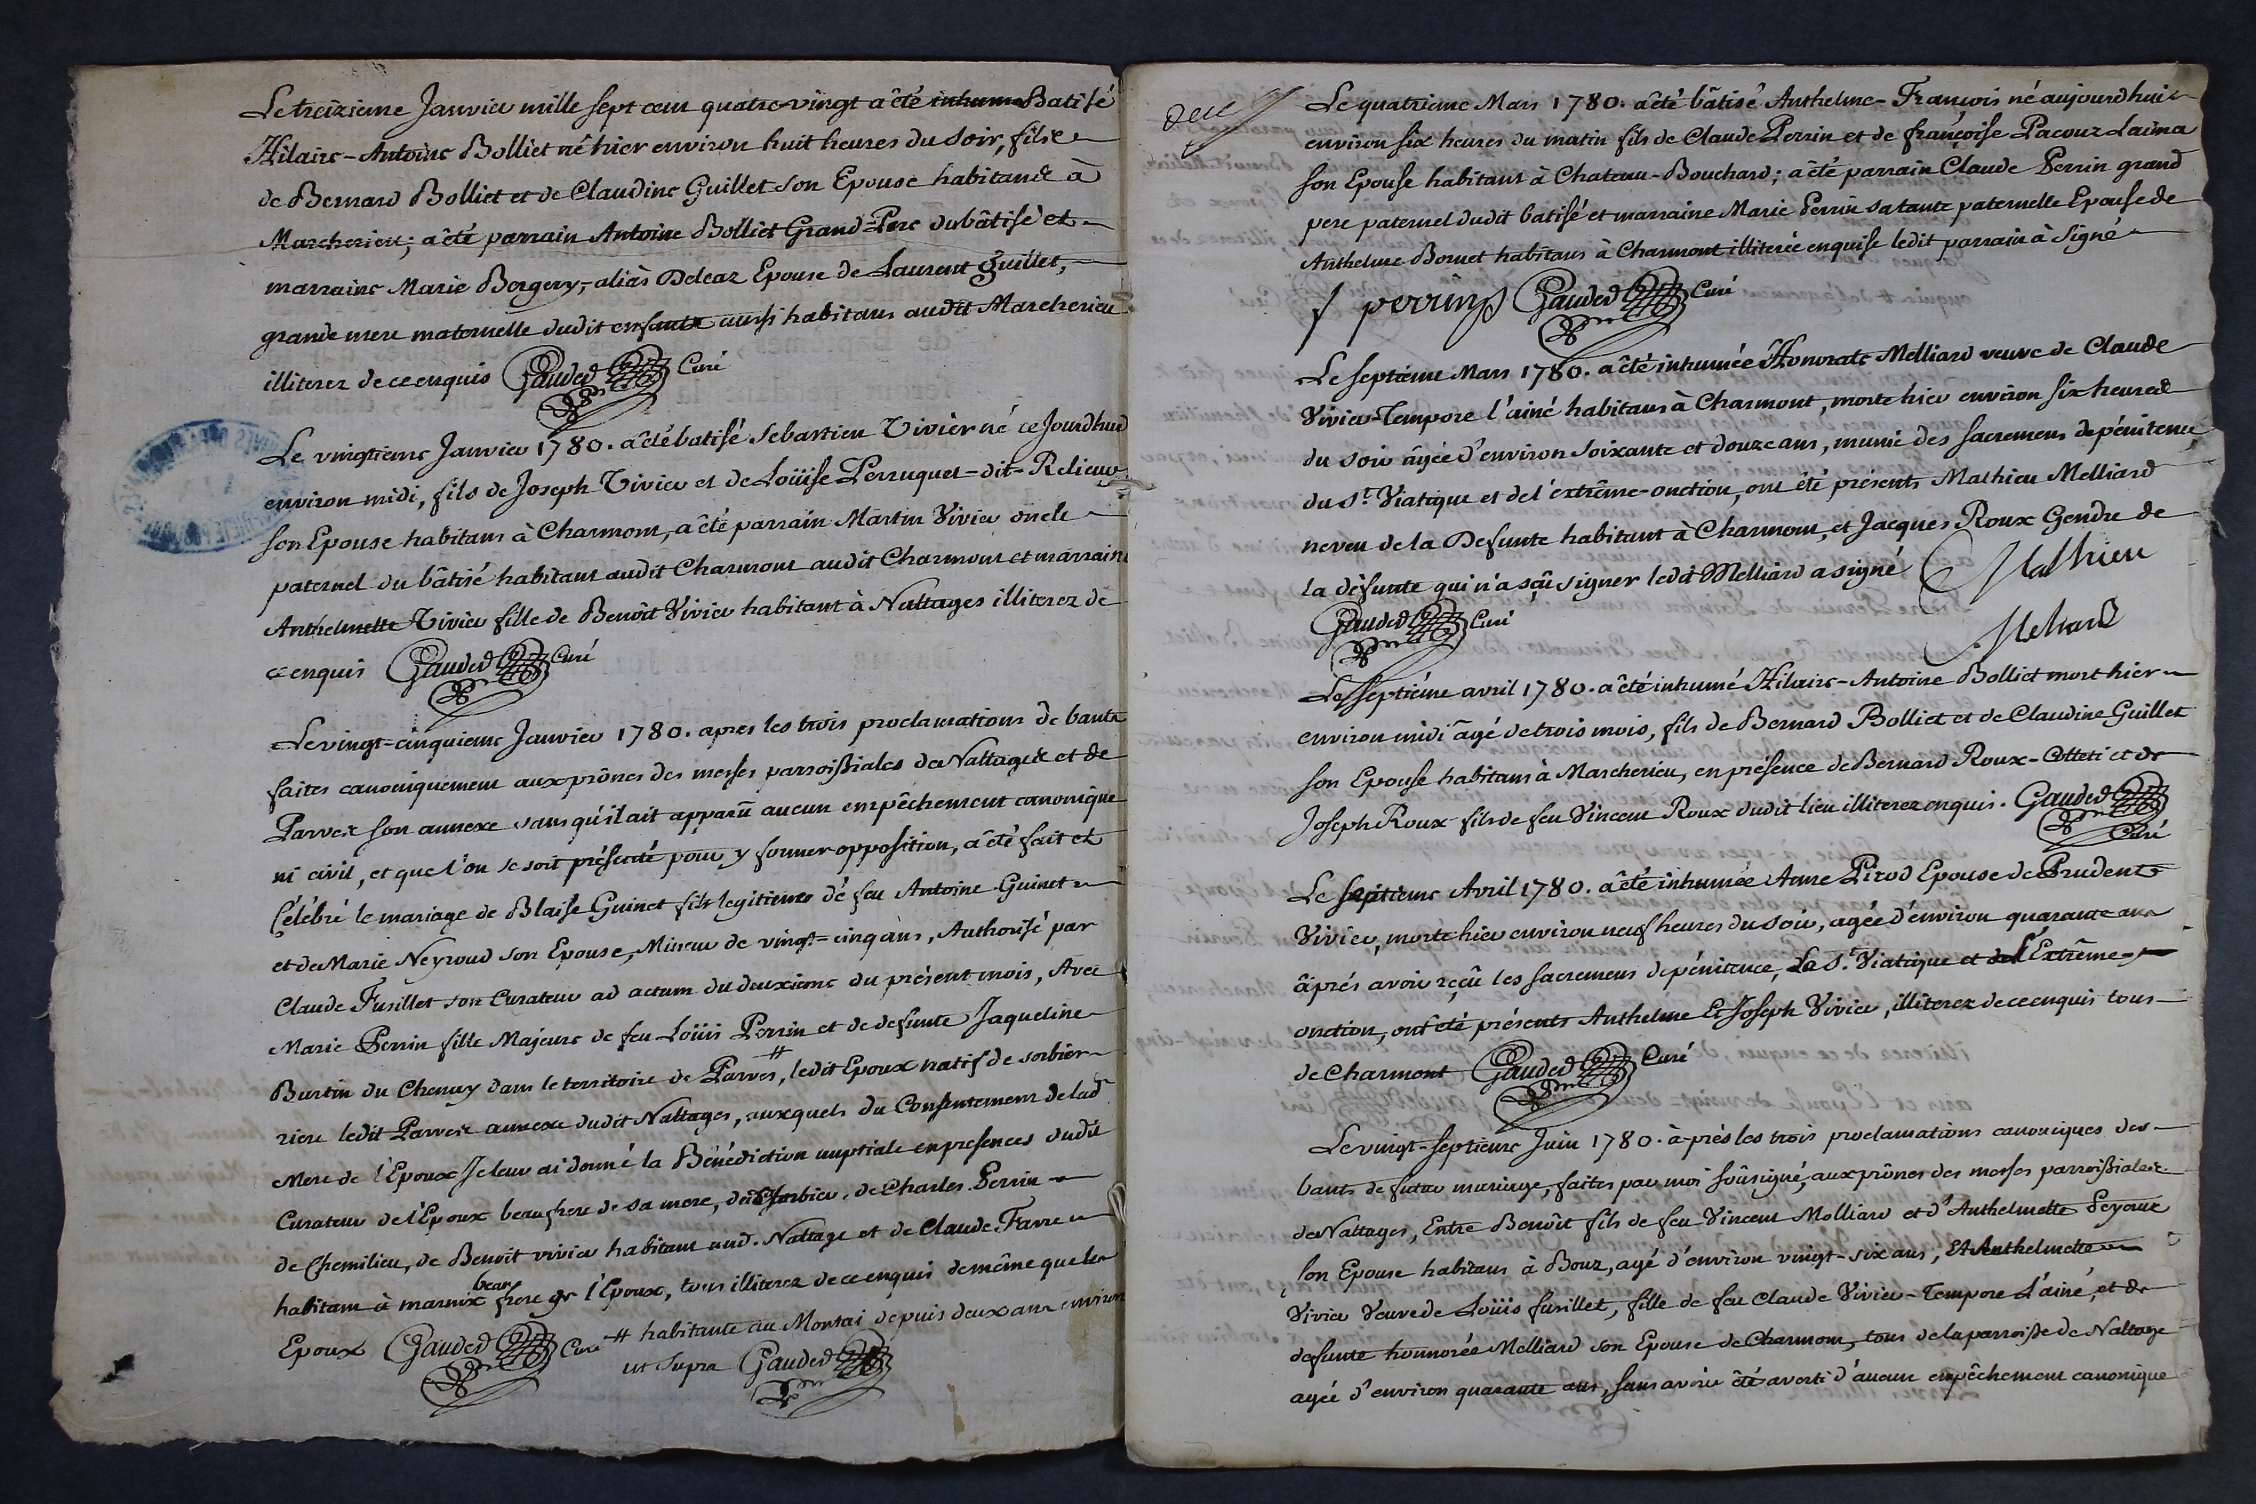 Le treizieme Janvier mille sept cent quatre-vingt a été inhumé Batisé
Hilaire-Antoine Bolliet né hier environ huit heures du soir, fils
de Bernard Bolliet et de Claudine Guillet son Epouse habitans à
Marcherieu; a été parrain Antoine Bolliet Grand-Pere du bâtisé et
marraine Marie Borgery, aliàs Deleaz Epouse de Laurent Guillet,
grande mere maternelle dudit enfant aussi habitans audit Marcherieu
illiterez de ce enquis Gauded Curé
Le vingtieme Janvier 1780. a été batisé Sebastien Vivier né ce Jourdhui
environ midi, fils de Joseph Vivier et de Loüise Perruquet-dit-Relieur
son Epouse habitans à Charmont, a été parrain Martin Vivier oncle
paternel du bâtisé habitant audit Charmont audit Charmont et marraine
Anthelmette Vivier fille de Benoît Vivier habitant à Nattages illiterez de
ce enquis Gauded Curé
Le vingt-cinquieme Janvier 1780. apres les trois proclamations de bants
faites canoniquement aux prônes des messes parroissiales de Nattages et de
Parves son annexe sans qu'il ait apparû aucun empêchement canonique
ni civil, et que l'on se soit présenté pour y former opposition, a été fait et
Célébré le mariage de Blaise Guinet fils legitime de feu Antoine Guinet
et de Marie Neyroud son Epouse, Mineur de vingt-cinq ans, Authorisé par
Claude Fusillet son Curateur ad actum du deuxieme du présent mois, Avec
Marie Perrin fille Majeure de feu Loüis Perrin et de defunte Jaqueline
Burtin du Chenay dans le territoire de Parves, # ledit Epoux natif de sorbier
riere ledit Parves annexe dudit Nattages, auxquels du Consentement de lad
Mere de l'Epoux Je leur ai donné la Bénédiction nuptiale en presences dudit
Curateur de l'Epoux beaufrere de sa mere, de Sorbier, de Charles Perrin
de Chemilieu, de Benoit vivier habitant aud. Nattage et de Claude Farre
habitant à marnix beau frere de l'Epoux, tous illiterez de ce enquis de même que les
Epoux Gauded Curé # habitante au Montai depuis deux ans environ
ut supra Gauded
Le quatrieme Mars 1780. a été bâtisé Anthelme-François né aujourdhui
environ six heures du matin fils de Claude Perrin et de françoise Pacoux Laima
son Epouse habitans à Chateau-Bouchard; a été parrain Claude Perrin grand
pere paternel dudit batisé et marraine Marie Perrin sa tante paternelle Epouse de
Anthelme Bornet habitans à Charmont illiterée enquise ledit parrain à signé
perrin Gauded Curé
Le septieme Mars 1780. a été inhumée Honorate Melliard veuve de Claude
Vivier-Tempore l'ainé habitans à Charmont, morte hier environ six heures
du soir âgée d'environ soixante et douze ans, munie des sacremens de pénitence,
du St. Viatique et de l'extrême-onction, ont été présents Mathieu Melliard
neveu de la Defunte habitant à Charmont, et Jacques Roux Gendre de
la défunte qui n'a sçû signer ledit Melliard a signé Mathieu
Meliard
Gauded Curé
Le septiéme avril 1780. a été inhumé Hilaire-Antoine Bolliet mort hier
environ midi âgé de trois mois, fils de Bernard Bolliet et de Claudine Guillet
son Epouse habitans à Marcherieu, en présence de Bernard Roux-Colleti et de
Joseph Roux fils de feu Vincent Roux dudit lieu illiterez enquis. Gauded
Curé
Le septieme Avril 1780. a été inhumée Anne Pirod Epouse de Prudent
Vivier, morte hier environ neuf heures du soir, agée d'environ quarante ans
âprés avoir reçû les sacremens de pénitence, Le St. Viatique et l'Extrême-
onction, ont été présents Anthelme Et Joseph Vivier, illiterez de ce enquis tous
de Charmont Gauded Curé
Le vingt-septieme Juin 1780. âprés les trois proclamations canoniques des
bants de futur mariage, faites par moi soûsigné, aux prônes des messes parroissiales
de Nattages, Entre Benoît fils de feu Vincent Molliard et d'Anthelmette Peyoux
son Epouse habitans à Bouz, agé d'environ vingt-six ans, Et Anthelmette
Vivier Veuve de Loüis fusillet, fille de feu Claude Vivier-Tempore L'ainé, et de
defunte honnorée Melliard son Epouse de Charmont, tous de la parroisse de Nattage
agée d'environ quarante ans, sans avoir été averti d'aucun empêchement canonique